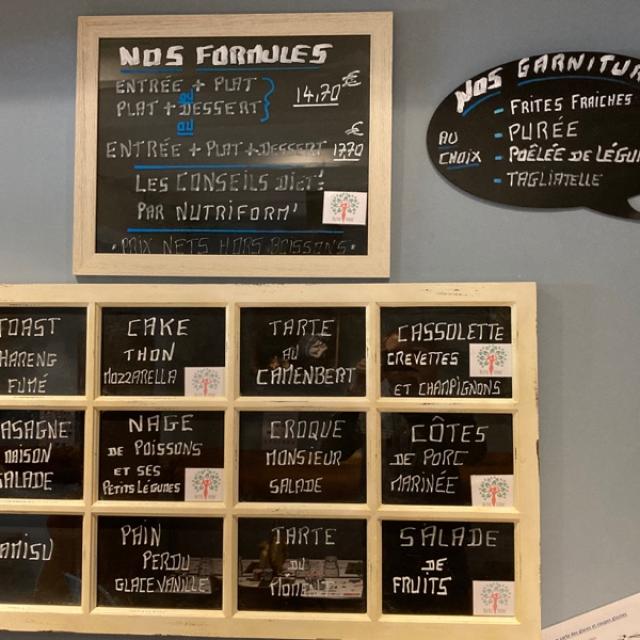 NOS FORMULES
ENTRÉE + PLAT
OU
PLAT + DESSERT
14,70 €
OU
ENTRÉE + PLAT + DESSERT 17.70 €
LES CONSEILS DIET'
PAR NUTRIFORM'
• PRIX NETS HORS BOISSONS •
NOS GARNITUR
AU
CHOIX
- FRITES FRAICHES
- PURÉE
- POÊLÉE DE LÉGU
- TAGLIATELLE
TOAST
HARENG
FUMÉ
CAKE
THON
MOZZARELLA
TARTE
AU
CAMEMBERT
CASSOLETTE
CREVETTES
ET CHAMPIGNONS
ASAGNE
MAISON
SALADE
NAGE
DE POISSONS
ET SES
PETITS LÉGUMES
CROQUE
MONSIEUR
SALADE
CÔTES
DE PORC
MARINÉE
AMISU
PAIN
PERDU
GLACE VANILLE
TARTE
DU
MOMENT
SALADE
DE
FRUITS